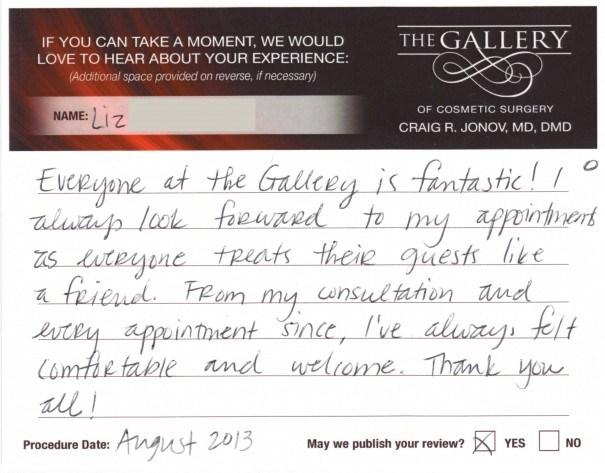 IF YOU CAN TAKE A MOMENT, WE WOULD
LOVE TO HEAR ABOUT YOUR EXPERIENCE:
(Additional space provided on reverse, if necessary)
NAME: Liz
THE GALLERY
OF COSMETIC SURGERY
CRAIG R. JONOV, MD, DMD
Everyone at the Gallery is fantastic! I
always look forward to my appointments
as everyone treats their guests like
a friend. From my consultation and
every appointment since, I've always felt
comfortable and welcome. Thank you
all!
Procedure Date: August 2013
May we publish your review? YES NO